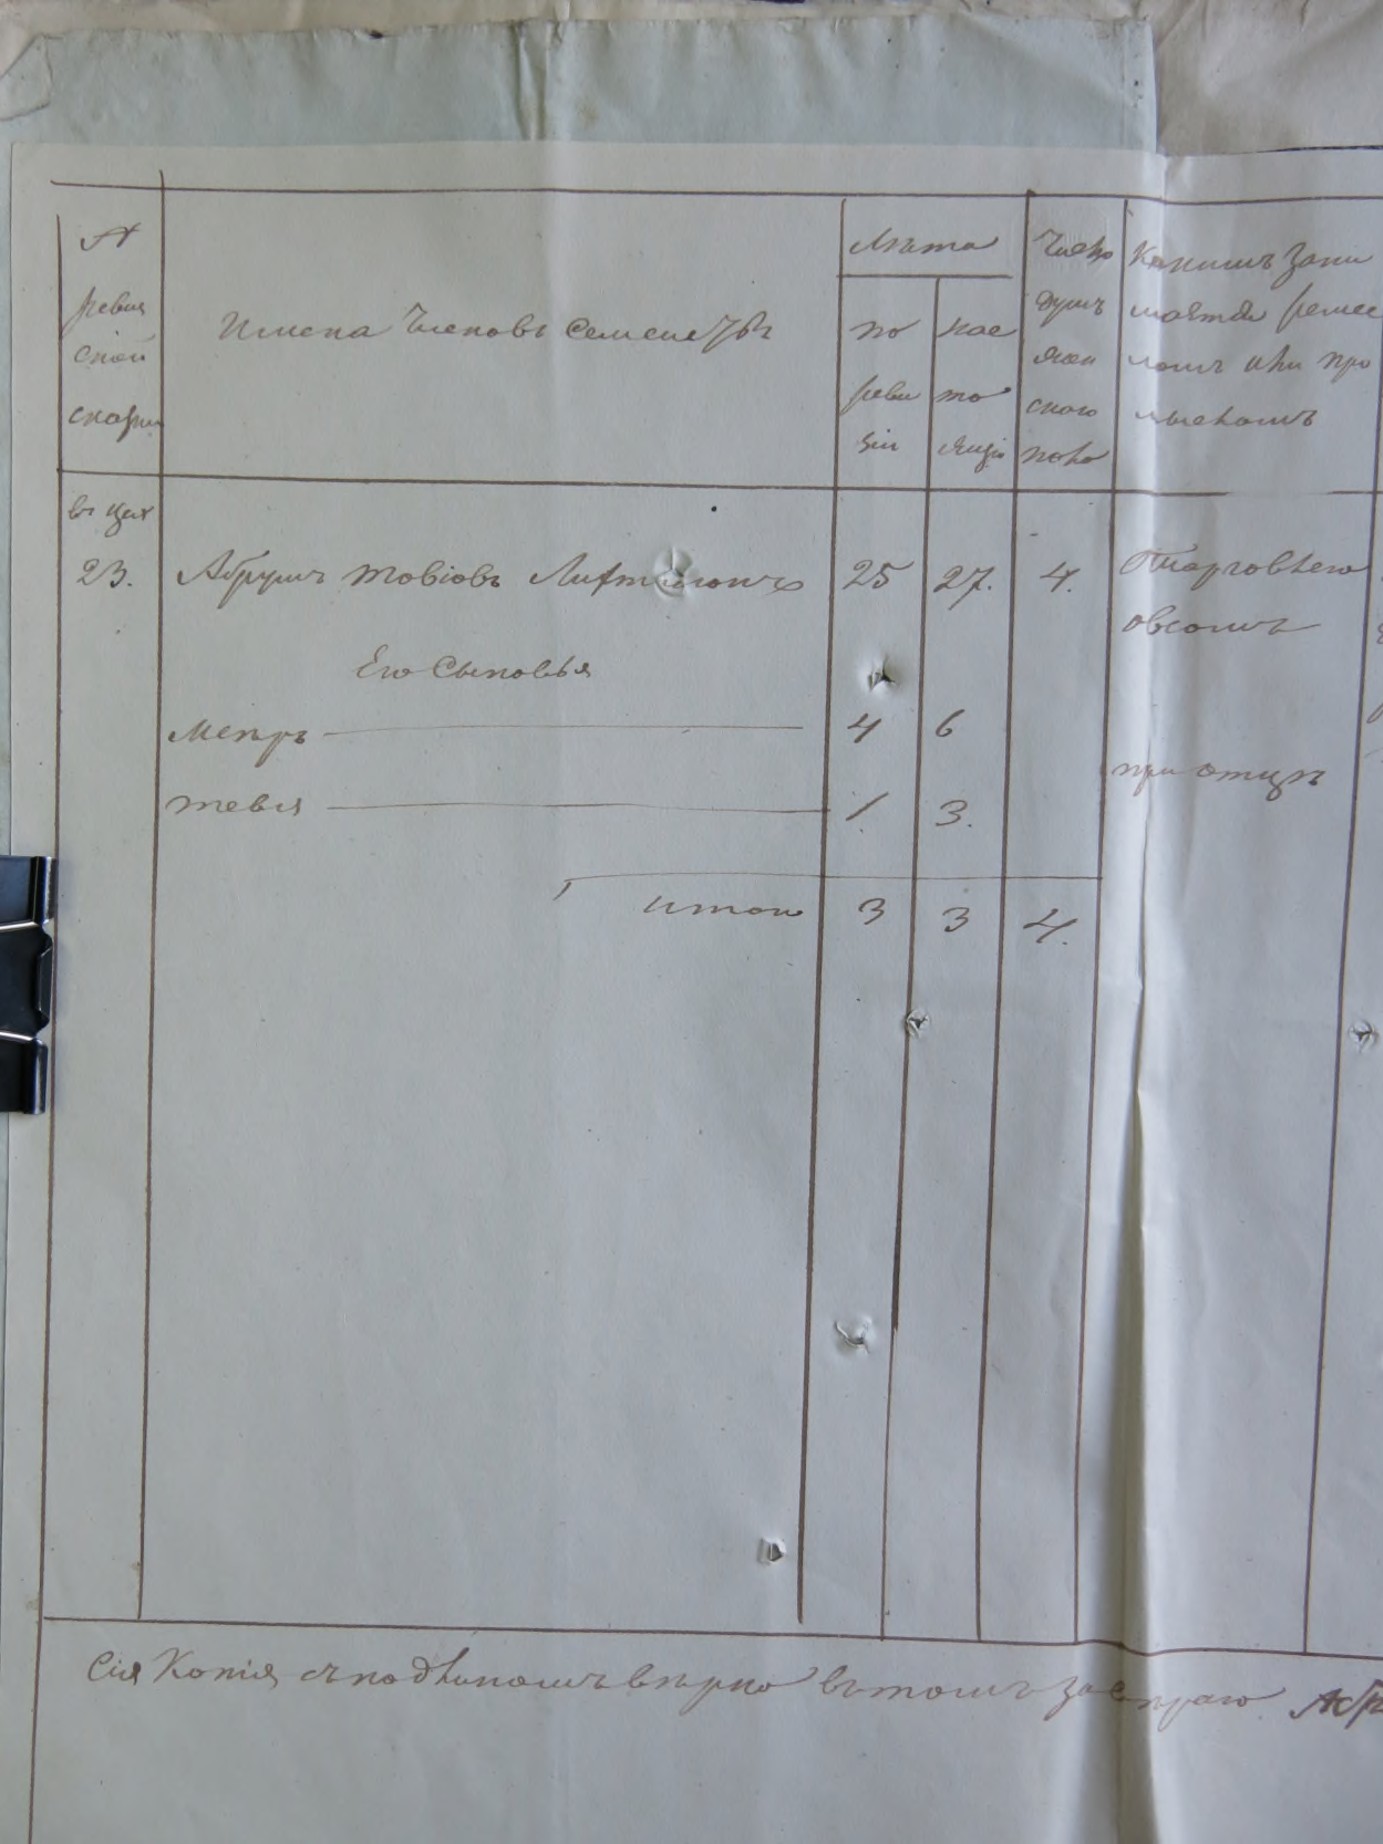 №
ревиж
ской
сказки
Имена Членовъ Семействъ
Лѣта
по
реви
зіи
нас
то
ящіе
Число
душъ
жен
скаго
пола
Какимъ зани
мается ремес
ломъ или про
мысломъ
въ цех
23. Абрумъ Товіовъ 25 27. 4. Тарговлею
овсомъ
Его Сыновья
Меиръ 4 6
при отцѣ
Тевля 1. 3.
итого 3 3 4.
Сія Копія съ подлинномъ вѣрно въ томъ Абр